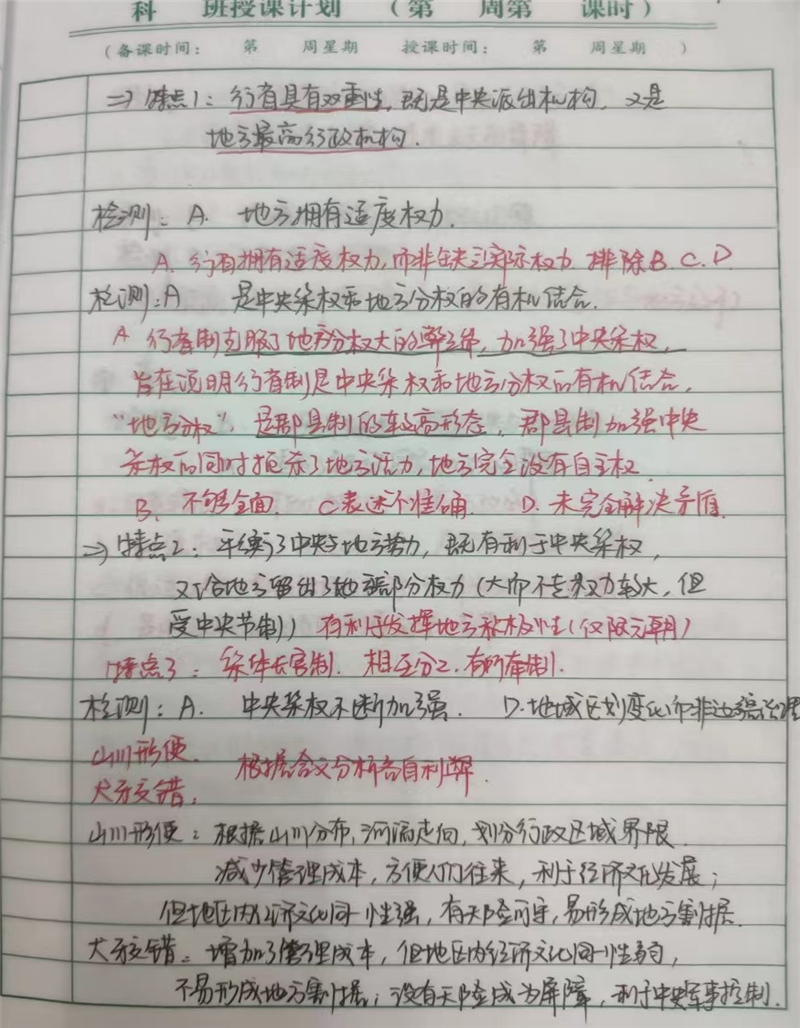 科 班授课计划 (第 周第 课时)
(备课时间: 第 周星期 授课时间: 第 周星期 )
⇒特点1: 行省具有双重性, 既是中央派出机构, 又是
地方最高行政机构.
检测: A. 地方拥有适度权力.
A. 行省拥有适度权力, 而非缺乏实际权力. 排除B.C.D
检测: A 是中央集权和地方分权的有机结合.
A 行省制克服了地方分权大的弊端, 加强了中央集权,
旨在说明行省制是中央集权和地方分权的有机结合,
“地方分权”, 是郡县制的较高形态, 郡县制加强中央
集权的同时扼杀了地方活力, 地方完全没有自主权.
B. 不够全面. C表述不准确. D. 未完全解决矛盾.
⇒特点2: 平衡了中央与地方势力, 既有利于中央集权,
又给地方留出了地方部分权力 (大而不专权力较大, 但
受中央节制) 有利于发挥地方积极性 (仅限元朝)
特点3: 集体长官制. 相互分工. 有所牵制.
检测: A. 中央集权不断加强. D. 地域区划变化而非边疆治理
山川形便. 根据含义分析各自利弊.
犬牙交错.
山川形便: 根据山川分布, 河流走向, 划分行政区域界限.
减少管理成本, 方便人们往来, 利于经济文化发展;
但地区内经济文化同一性强, 有天险可守, 易形成地方割据.
犬牙交错: 增加了管理成本, 但地区内经济文化同一性弱,
不易形成地方割据; 没有天险成为屏障, 利于中央军事控制.